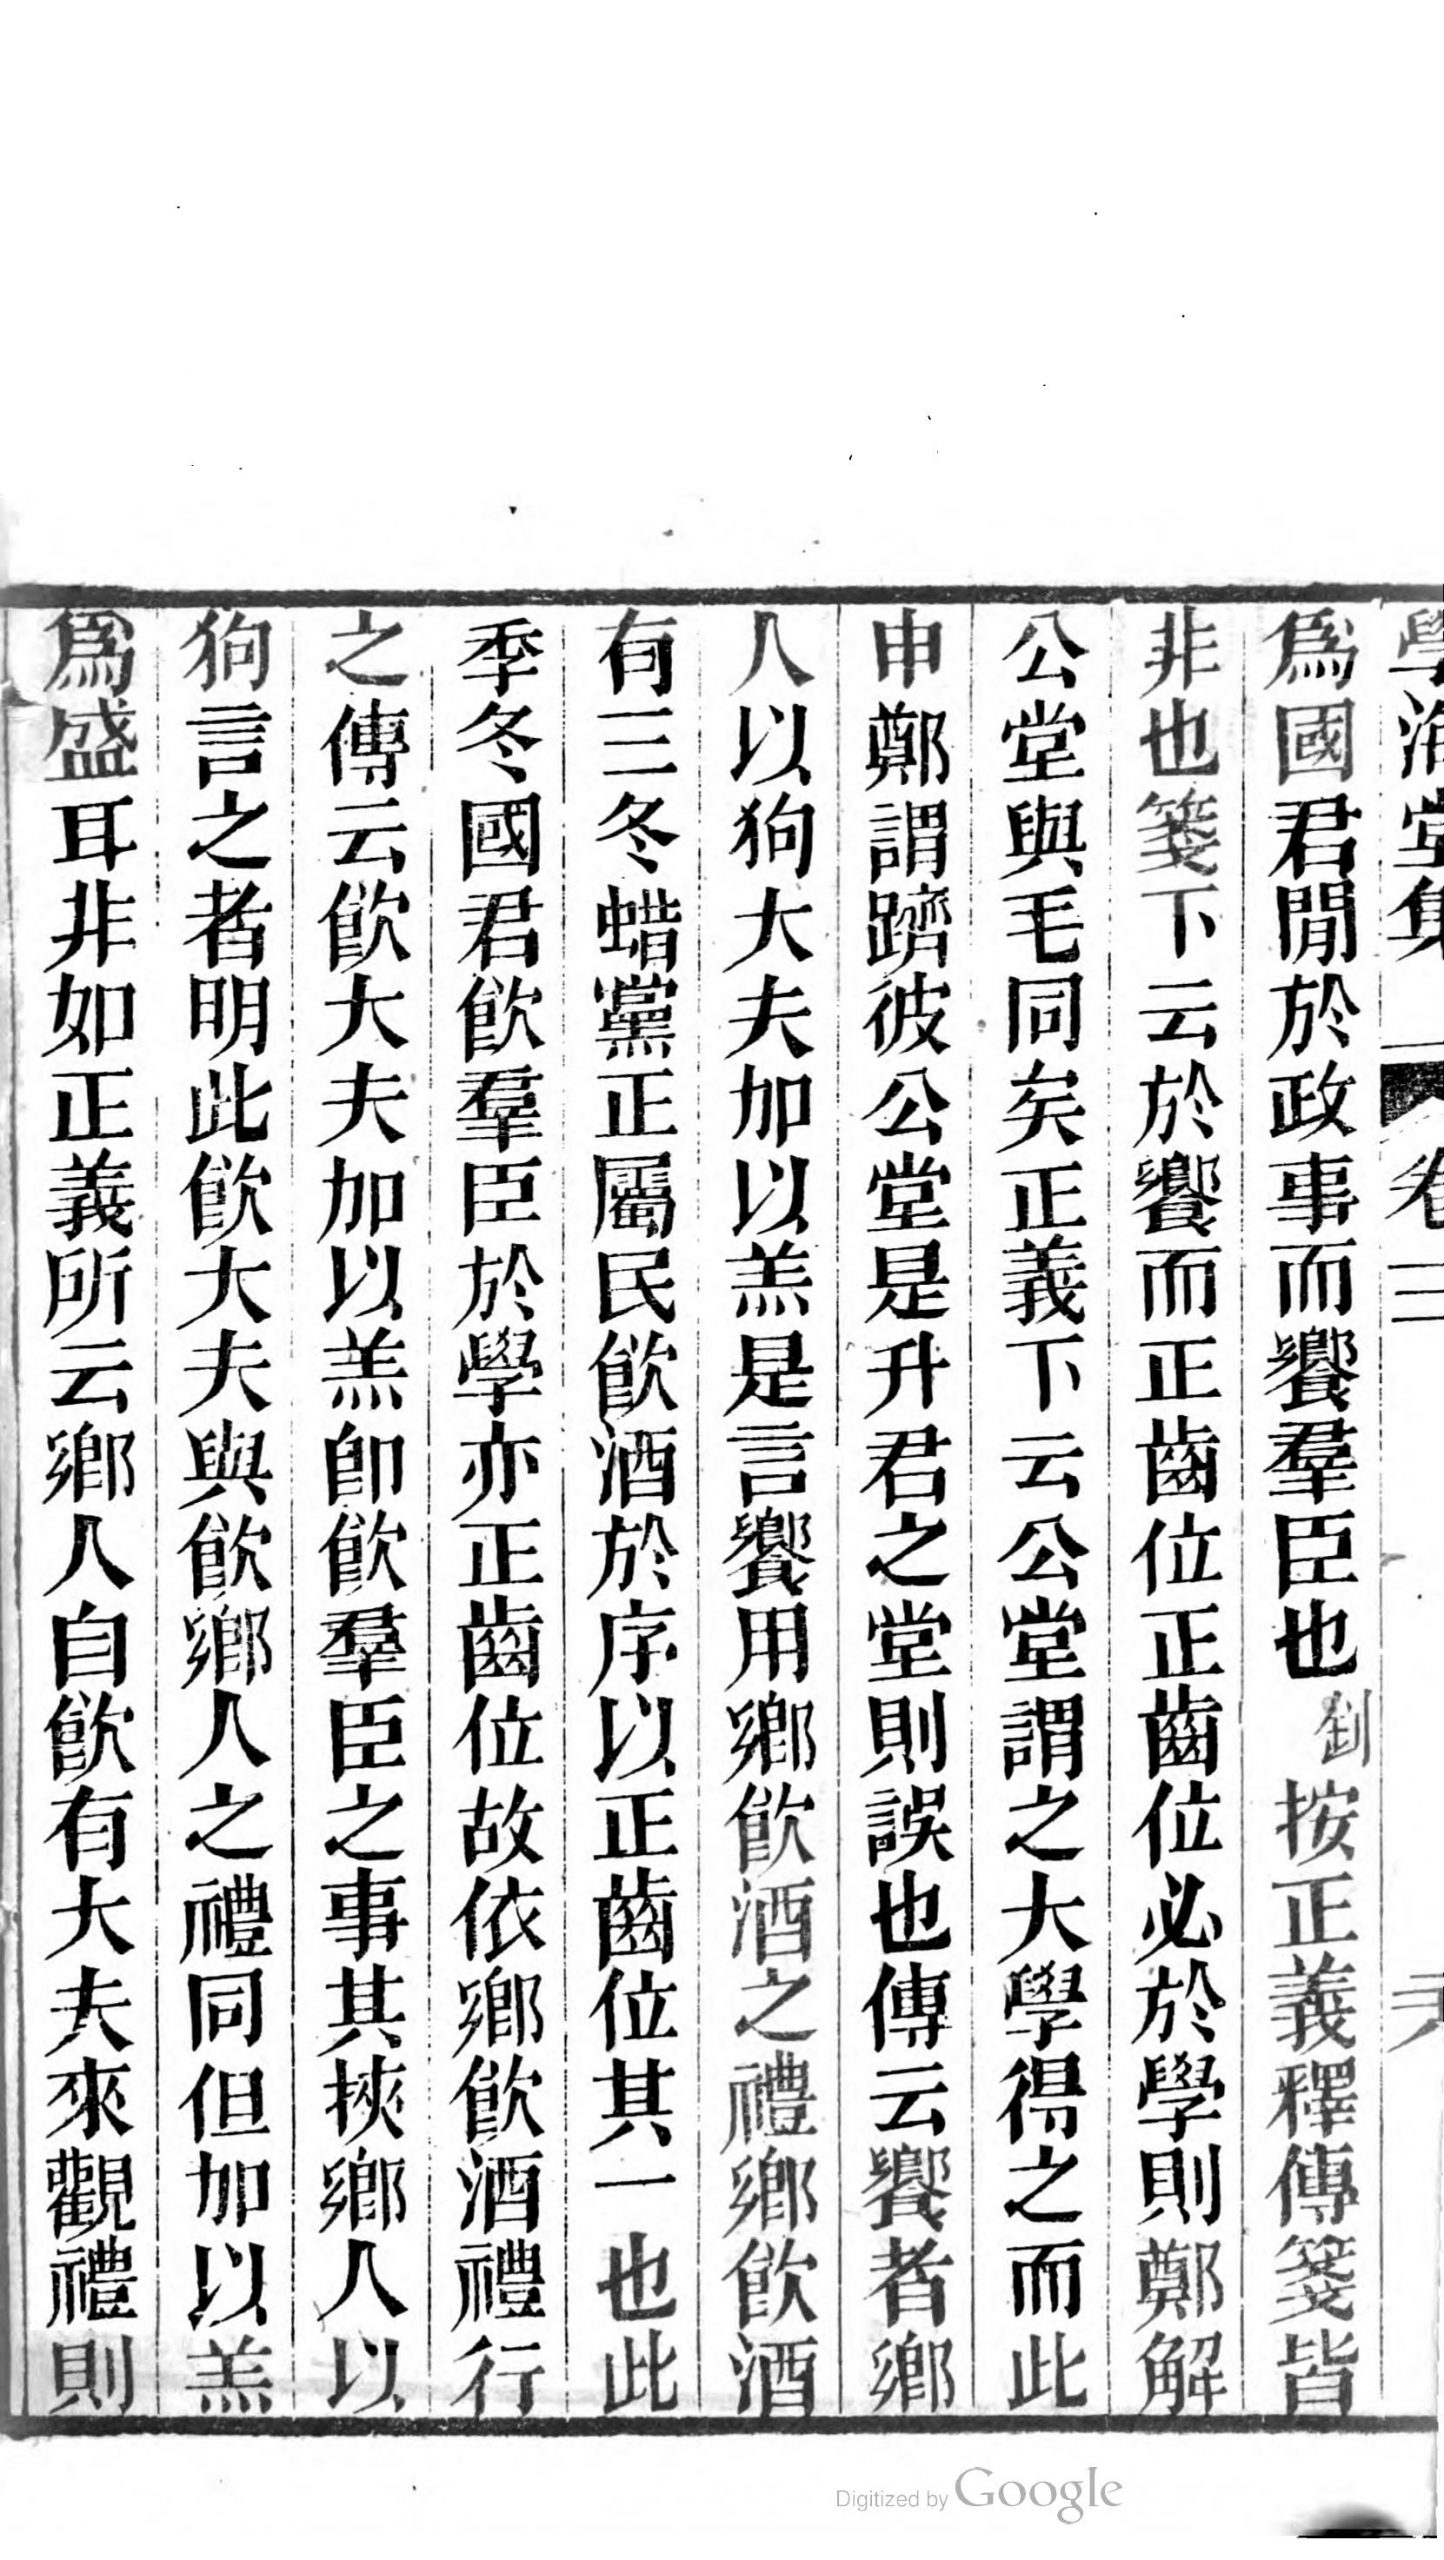 學海堂集 卷三
爲國君閒於政事而饗羣臣也 釗按正義釋傳箋皆
非也箋下云於饗而正齒位正齒位必於學則鄭解
公堂與毛同矣正義下云公堂謂之大學得之而此
申鄭謂躋彼公堂是升君之堂則誤也傳云饗者鄉
人以狗大夫加以羔是言饗用鄉飮酒之禮鄉飮酒
有三冬蜡黨正屬民飮酒於序以正齒位其一也此
季冬國君飮羣臣於學亦正齒位故依鄉飮酒禮行
之傳云飮大夫加以羔卽飮羣臣之事其挾鄉人以
狗言之者明此飮大夫與飮鄉人之禮同但加以羔
爲盛耳非如正義所云鄉人自飮有大夫來觀禮則
Digitized by Google